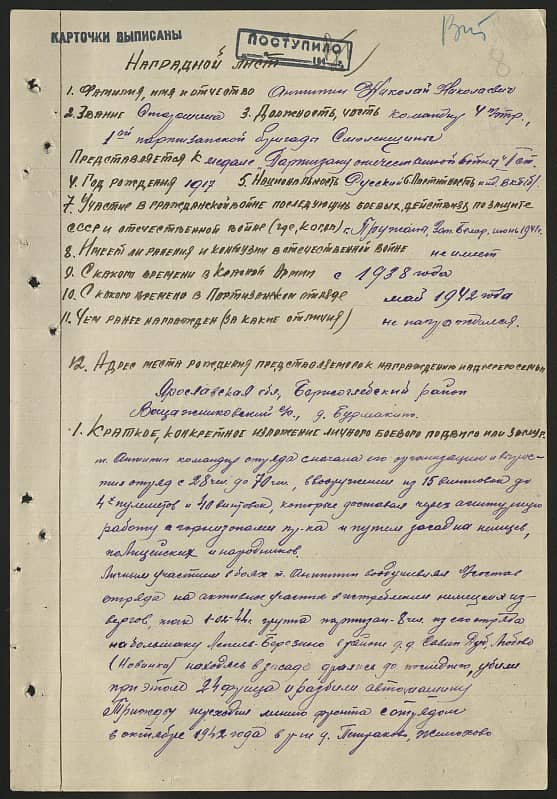 КАРТОЧКИ ВЫПИСАНЫ
ПОСТУПИЛО
8
Наградной лист
1. Фамилия, имя и отчество Антипин Николай Николаевич
2. Звание Старшина 3. Должность, часть командир 4 отр.,
1ой партизанской бригады Смоленщины
Представляется к медале „Партизану отечественной войны" I ст.
4. Год рождения 1917 5. Национальность Русский 6. Партийность ВКП(б)
7. Участие в гражданской войне последующих боевых действиях по защите
СССР и отечественной войне (где, когда) с. Пружана, Зап. Белор. июнь 1941 г.
8. Имеет ли ранения и контузии в отечественной войне не имеет
9. С какого времени в Красной Армии с 1938 года
10. С какого времени в Партизанском отряде май 1942 года
11. Чем ранее награжден (за какие отличия) не награждался.
12. Адрес места рождения представляемого к награждению и адрес его семьи
Ярославская обл, Борисоглебский район
Вощажниковский с/с, д.
1. Краткое, конкретное изложение личного боевого подвига или заслуг.
т. Антипин командуя отряда сначала его организации
отряд с 28 чел. до 70 чел., вооружением из 15 винтовок до
4х пулеметов и 40 винтовок, которые доставал через агитурную
работу с горнизонами пр-ка и путем засад на немцев,
полицейских и народников.
Личным участием в боях т. Антипин воодушевлял состав
отряда на активное участие в истреблении немецких из-
вергов, группа партизан-8 чел. из его отряда
на большаку Лепель-Березино в районе д.д.
находясь в засаде дралась до последнего, убили
при этом 24 фрица и разбили автомашину
Трижды переходил линию фронта с отрядом
в октябре 1942 года в р-не д.